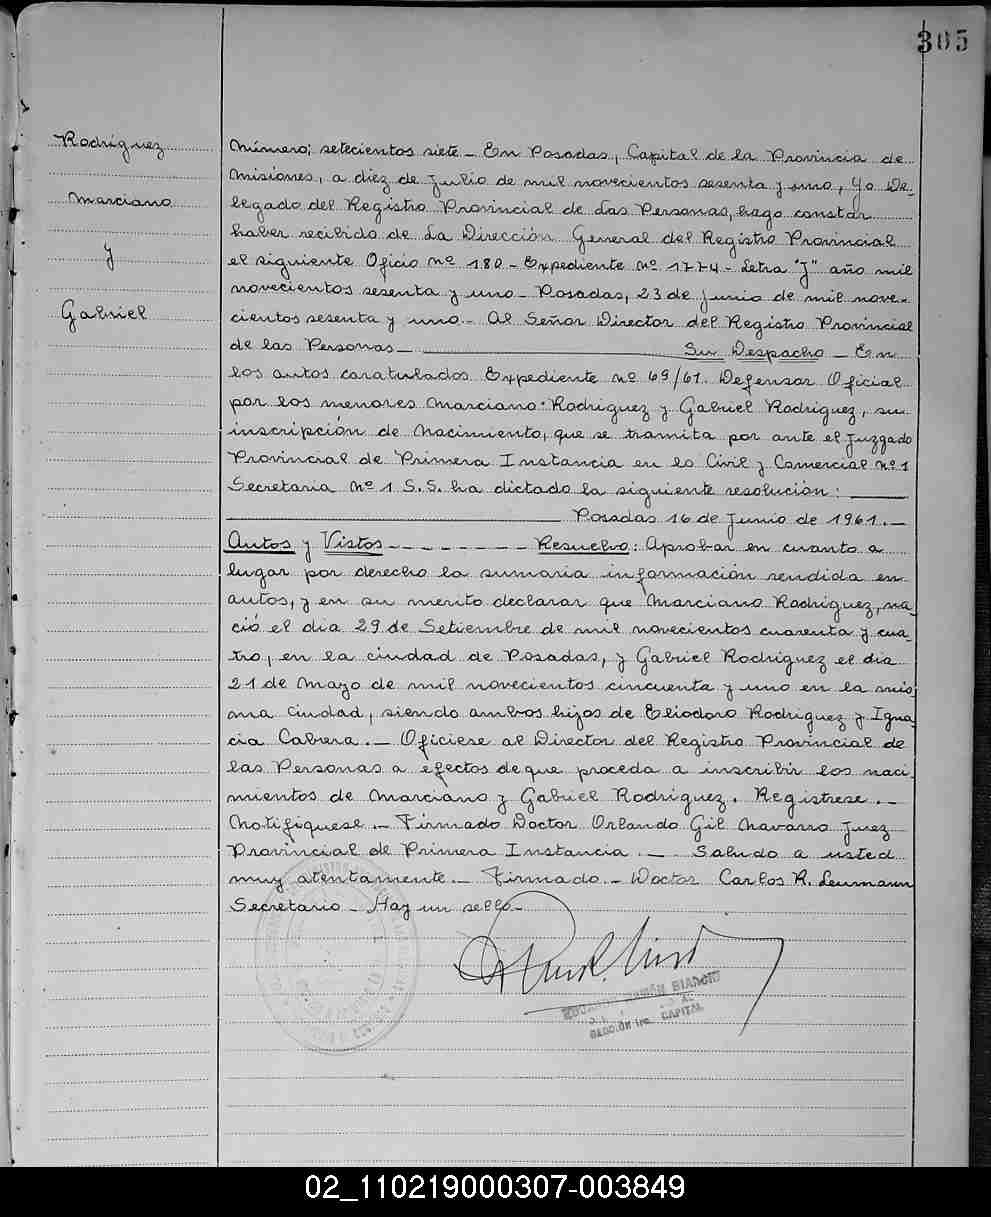 305
Rodríguez
Marciano
y
Gabriel
Número; setecientos siete - En Posadas, Capital de la Provincia de
Misiones, a diez de Julio de mil novecientos sesenta y uno, Yo De-
legado del Registro Provincial de Las Personas, hago constar
haber recibido de La Dirección General del Registro Provincial
el siguiente Oficio nº 180 - Expediente nº 1774 - Letra "J" año mil
novecientos sesenta y uno - Posadas, 23 de Junio de mil nove-
cientos sesenta y uno - Al Señor Director del Registro Provincial
de las Personas - Su Despacho - En
los autos caratulados Expediente nº 69/61. Defensor Oficial
por los menores Marciano Rodríguez y Gabriel Rodríguez, su
inscripción de Nacimiento, que se tramita por ante el Juzgado
Provincial de Primera Instancia en lo Civil y Comercial nº 1
Secretaria nº 1 S.S. ha dictado la siguiente resolución:
Posadas 16 de Junio de 1961. -
Autos y Vistos - - - - - - - Resuelvo: Aprobar en cuanto a
lugar por derecho la sumaria información rendida en
autos, y en su merito declarar que Marciano Rodríguez, na-
ció el dia 29 de Setiembre de mil novecientos cuarenta y cua-
tro, en la ciudad de Posadas, y Gabriel Rodríguez el dia
21 de Mayo de mil novecientos cincuenta y uno en la mis-
ma Ciudad, siendo ambos hijos de Eliodoro Rodríguez y Igna-
cia Cabrera. - Ofíciese al Director del Registro Provincial de
las Personas a efectos de que proceda a inscribir los naci-
mientos de Marciano y Gabriel Rodríguez. Registrese. -
Notifiquese. - Firmado Doctor Orlando Gil Navarro Juez
Provincial de Primera Instancia. - Saludo a usted
muy atentamente. - Firmado. - Doctor Carlos R. Leumann
Secretario - Hay un sello -
BIANCHI
CAPITAL
02_110219000307-003849